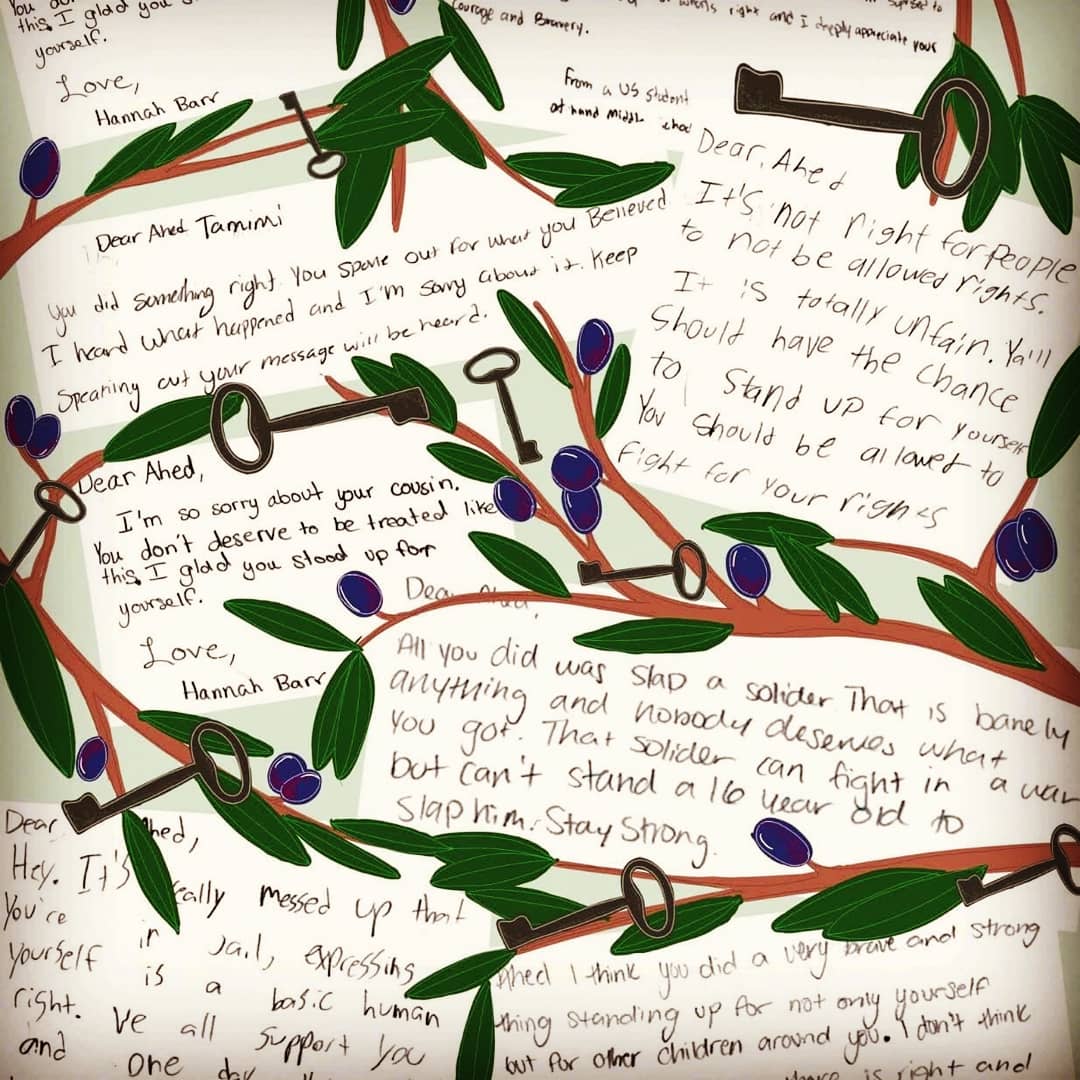 this, I glad you
yourself.
Love,
Hannah Barr
Courage and Bravery.
right and I deeply appreciate your
From a US student
at Middle
Dear Ahed Tamimi
you did something right. You spoke out for what you Believed
I heard what happened and I'm sorry about it. Keep
Speaking out your message will be heard.
Dear, Ahed
It's not right for people
to not be allowed rights.
It is totally unfair. Ya'll
Should have the chance
to Stand up for yourself
You should be allowed to
fight for your rights
Dear Ahed,
I'm so sorry about your cousin.
You don't deserve to be treated like
this, I glad you stood up for
yourself.
Love,
Hannah Barr
All you did was slap a solider. That is barely
anything and nobody deserves what
you got. That solider can fight in a war
but can't stand a 16 year old to
slap him. Stay Strong.
Dear Ahed,
Hey. It's messed up that
You're in Jail, expressing
yourself is a basic human
right. We all support you
and One day
Ahed I think you did a very brave and strong
thing standing up for not only yourself
but for other children around you. I don't think
is right and